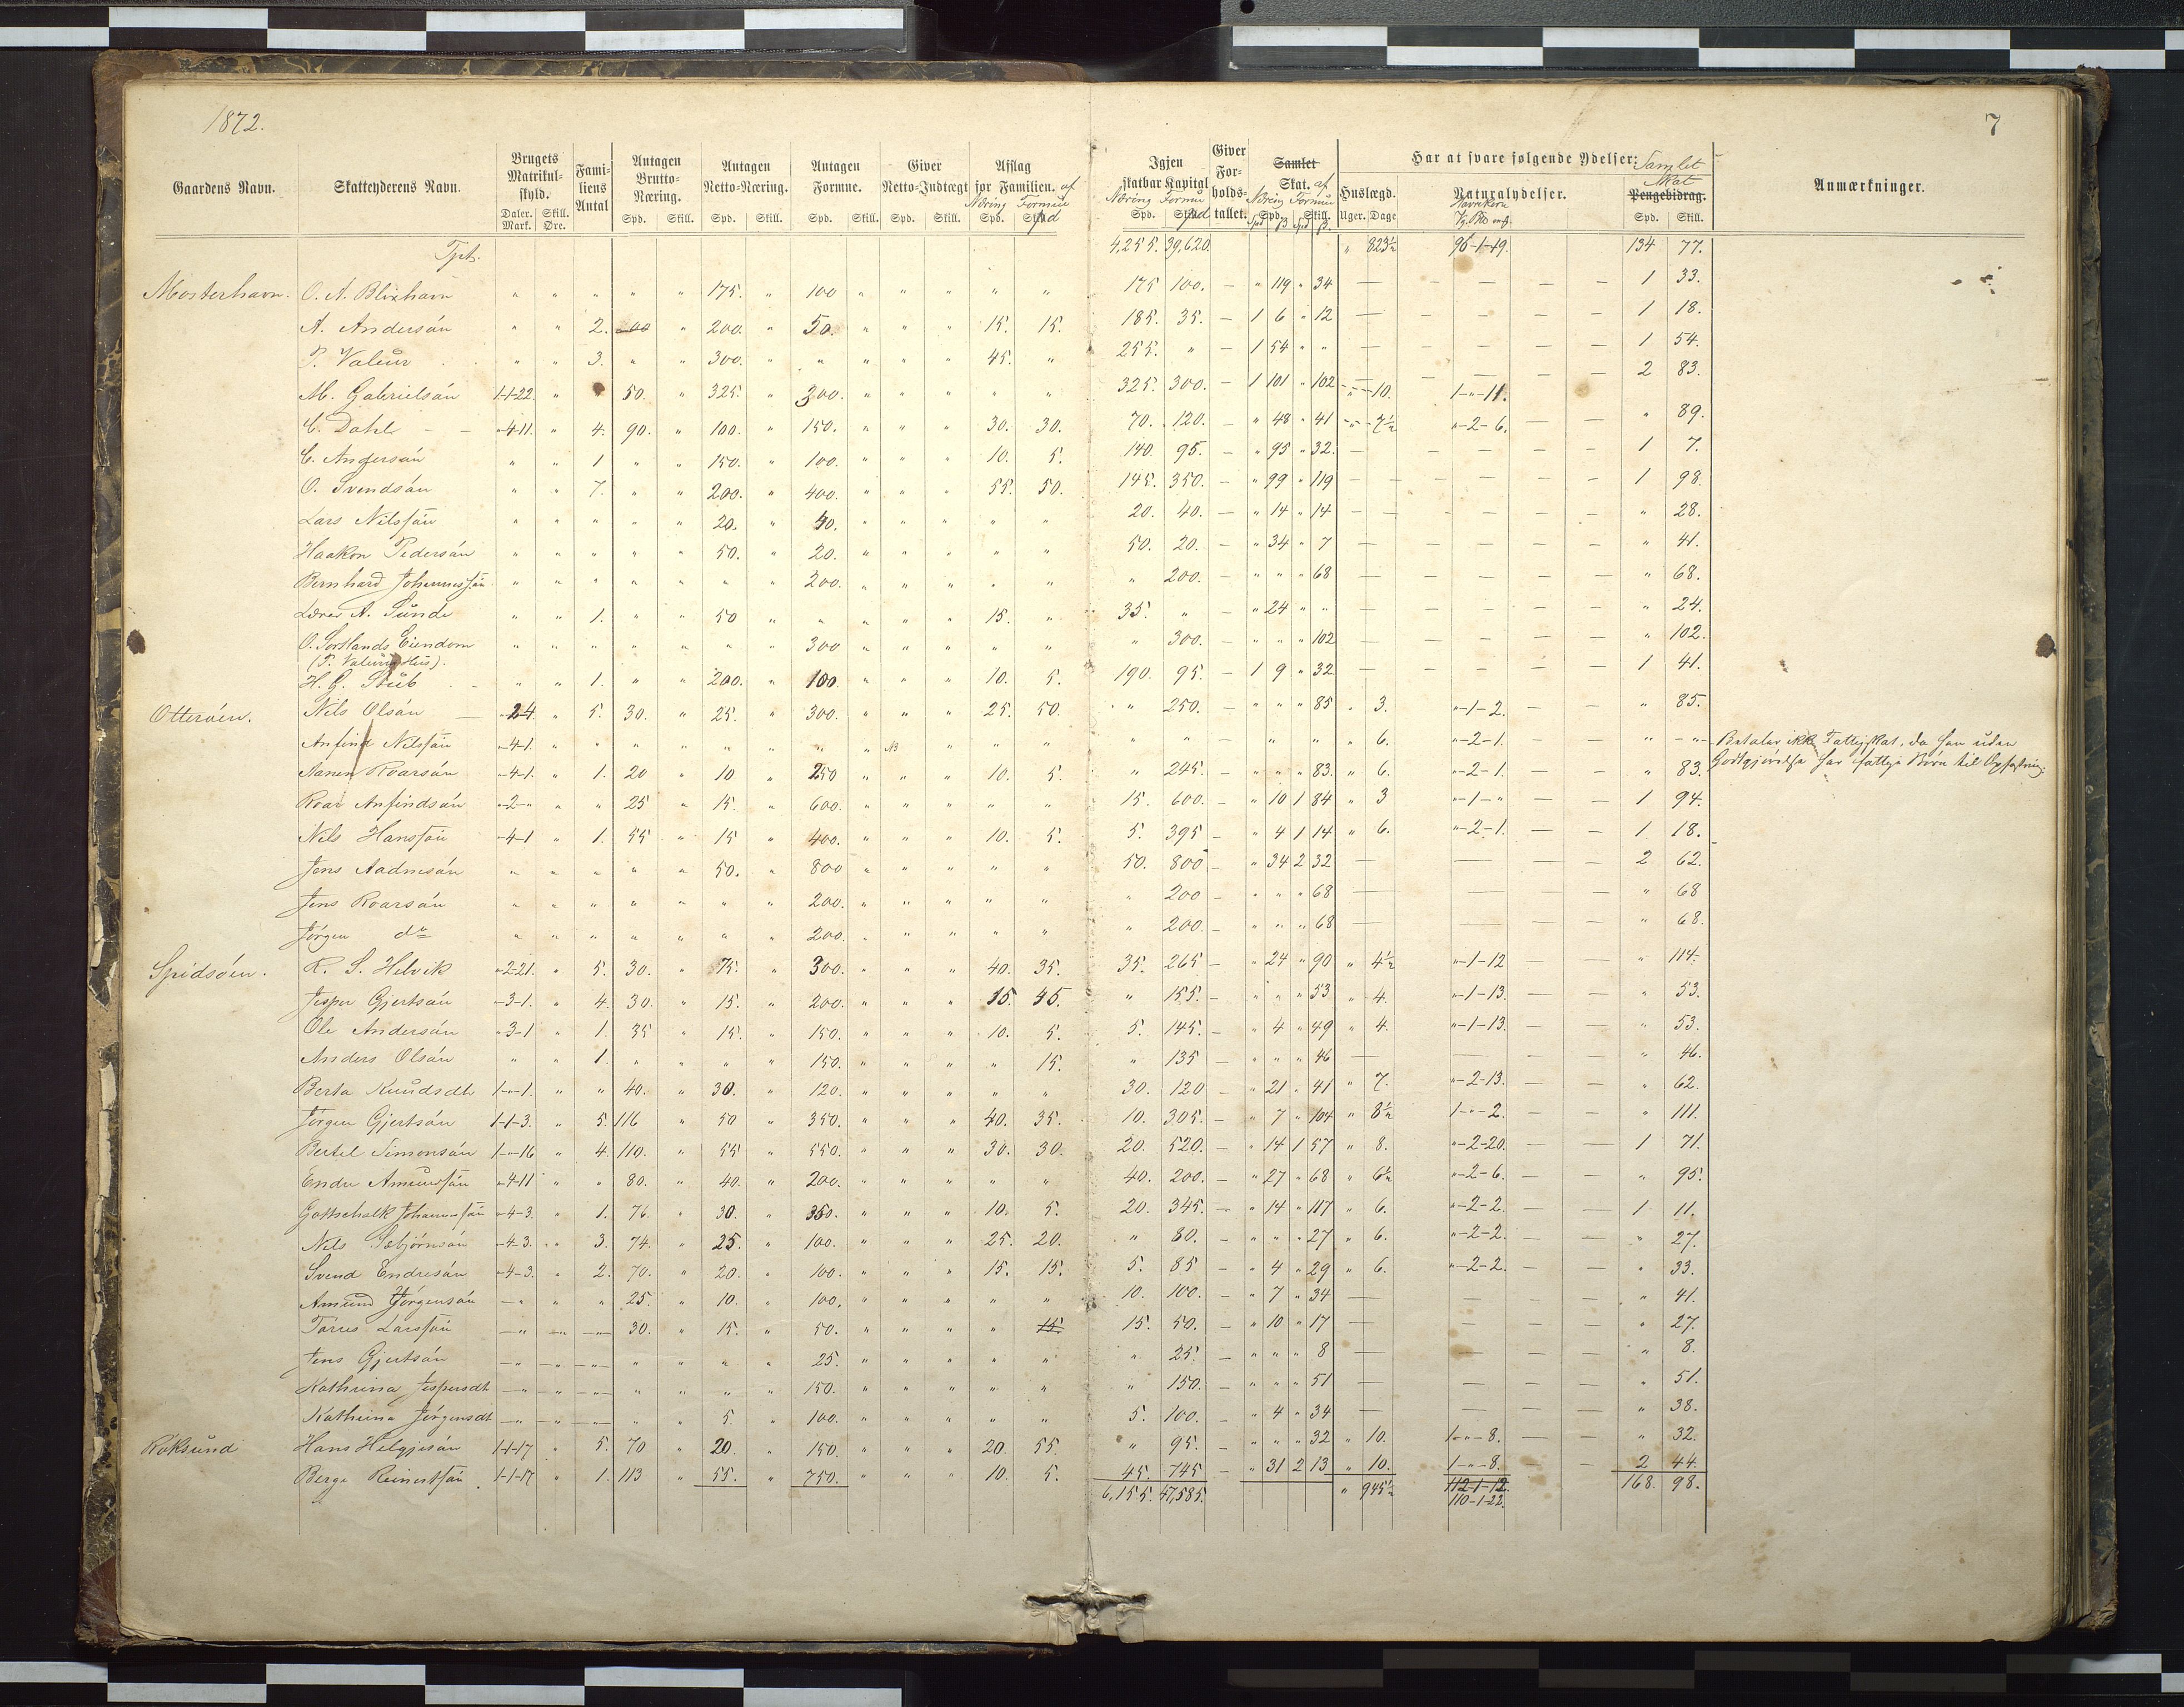 1872.
7
Gaardens Navn. Skatteyderens Navn. Brugets Matrikulskyld. Daler. Mark. Skill. Øre. Familiens Antal Antagen Brutto-Næring. Spd. Skill. Antagen Netto-Næring. Spd. Skill. Antagen Formue. Spd. Skill. Giver Netto-Indtægt Spd. Skill. Afslag for Familien. af Næring Formue Spd. Skill. Igjen skatbar Kapital Næring Formue Spd. Skill. Giver Forholdstallet. Samlet Skat. af Næring Formue Spd. Skill. Har at svare følgende Ydelser: Huslægd. Uger. Dage Naturalydelser. Havrekorn Samlet Skat Pengebidrag. Spd. Skill. Anmærkninger.
Tpt. 4,255. 39,620. " 823½ 96-1-19. 134 77.
Mosterhavn. O. A. Blixhavn " " " " " 175. " 100 " " " " " 175 100. — " 119 " 34 — — — — — 1 33.
A. Andersön " " 2. " 200. " 50. " " " 15. 15. 185. 35. — 1 6 " 12 — — — — — 1 18.
P. Valeur " " 3. " " 300. " " " " " 45. " 255. " — 1 54 " " — — — — — 1 54.
M. Gabrielsön 1-1-22. " 50. " 325. " 300. " " " " " 325. 300. — 1 101 " 102 " 10. 1-"-11. — — 2 83.
C. Dahl "-4-11. " 4. 90. " 100. " 150. " " " 30. 30. 70. 120. — " 48 " 41 " 7½ "-2-6. — — " 89.
C. Andersön " " 1 " " 150. " 100. " " " 10. 5. 140. 95. — " 95 " 32. — — — — — 1 7.
O. Svendsön " " 7. " " 200. " 400. " " " 55. 50. 145. 350. — " 99 " 119 — — — — — 1 98.
Lars Nilssön " " " " " 20. " 40. " " " " " 20. 40. — " 14 " 14 — — — — — " 28.
Haakon Pedersön " " " " " 50. " 20. " " " " " 50. 20. — " 34 " 7 — — — — — " 41.
Bernhard Johannessön " " " " " " " 200. " " " " " " 200. — " " " 68 — — — — — " 68.
Lærer A. Sunde " " 1. " " 50 " " " " " 15. " 35. " — " 24 " " — — — — — " 24.
O. Sortlands Eiendom " " " " " " " 300 " " " " " " 300. — " " " 102 — — — — — " 102.
(P. Valeurs Hus).
H. G. Stub " " 1. " " 200. " 100. " " " 10. 5. 190. 95. — 1 9 " 32 — — — — — 1 41.
Otteröen. Nils Olsön "-2-4. " 5. 30. " 25. " 300. " " " 25. 50. " 250. — " " " 85 " 3. "-1-2. — — " 85.
Anfind Nilssön "-4-1. " " " " " " " " NB " " " " " — " " " " " 6. "-2-1. — — " " Betaler ikke Fattigskat, da han uden
Godtgjörelse har fattige Börn til Opfostring.
Aanen Roarsön "-4-1. " 1. 20 " 10 " 250 " " " 10. 5. " 245. — " " " 83. " 6. "-2-1. — — " 83.
Roar Anfindsön "-2-" " " 25 " 15. " 600. " " " " " 15. 600. — " 10 1 84 " 3 "-1-" — — 1 94.
Nils Hanssön "-4-1 " 1. 55 " 15 " 400. " " " 10. 5. 5. 395 — " 4 1 14 " 6. "-2-1. — — 1 18.
Jens Aadnesön " " " " " 50. " 800 " " " " " 50. 800 — " 34 2 32 — — — — 2 62.
Jens Roarsön " " " " " " " 200. " " " " " " 200 — " " " 68 — — — — " 68
Jörgen do " " " " " " " 200. " " " " " " 200. — " " " 68 — — — — " 68.
Spidsöen. R. S. Helvik "-2-21. " 5. 30. " 75. " 300. " " " 40. 35. 35. 265 — " 24 " 90 " 4½ "-1-12 — — " 114.
Jesper Gjertsön "-3-1. " 4. 30. " 15. " 200. " " " 15. 45. " 155. — " " " 53 " 4. "-1-13. — — " 53.
Ole Andersön "-3-1 " 1. 35 " 15. " 150. " " " 10. 5. 5. 145. — " 4 " 49 " 4. "-1-13. — — " 53.
Anders Olsön " " 1. " " " " 150. " " " " 15. " 135 — " " " 46 — — — — " 46.
Berta Knudsdtr 1-"-1. " " 40. " 30. " 120. " " " " " 30. 120 — " 21 " 41 " 7. "-2-13. — — " 62.
Jörgen Gjertsön 1-1-3. " 5. 116 " 50 " 350. " " " 40. 35. 10. 305. — " 7 " 104 " 8½ 1-"-2. — — " 111.
Bertel Simonsön 1-"-16 " 4. 110. " 55 " 550. " " " 30. 30. 20. 520. — " 14 1 57 " 8. "-2-20. — — 1 71.
Endre Amundsön "-4-11 " " 80. " 40. " 200. " " " " " 40. 200. — " 27 " 68 " 6½ "-2-6. — — " 95.
Gottschalk Johannessön "-4-3. " 1. 76. " 30. " 350. " " " 10. 5. 20. 345. — " 14 " 117 " 6. "-2-2. — — 1 11.
Nils Sæbjörnsön "-4-3. " 3. 74. " 25. " 100. " " " 25. 20. " 80. — " " " 27 " 6. "-2-2. — — " 27.
Svend Endresön "-4-3. " 2. 70. " 20. " 100. " " " 15. 15. 5. 85 — " 4 " 29 " 6. "-2-2. — — " 33.
Amund Jörgensön — " " " 25. " 10. " 100. " " " " " 10. 100. — " 7 " 34 — — — — " 41.
Törres Larssön — " — " — " 30. " 15. " 50. " " " " 15 15. 50. — " 10 " 17 — — — — " 27.
Jens Gjertsön — " — " — " " " " " 25. " " " " " " 25. — " " " 8 — — — — " 8.
Kathrina Jespersdt — " — " — " " " " " 150. " " " " " " 150. — " " " 51 — — — — " 51.
Kathrina Jörgensdt — " — " — " " " 5. " 100. " " " " " 5. 100. — " 4 " 34 — — — — " 38.
Röksund Hans Helgesön 1-1-17 " 5. 70 " 20. " 150. " " " 20. 55. " 95. — " " " 32 " 10. 1-"-8. — — " 32.
Berge Reinertsön 1-1-17 " 1. 113 " 55. " 750. " " " 10. 5. 45. 745 — " 31 2 13 " 10. 1-"-8. — — 2 44.
6,155. 47,585. " 945½ 112-1-12. 168. 98.
110-1-22.